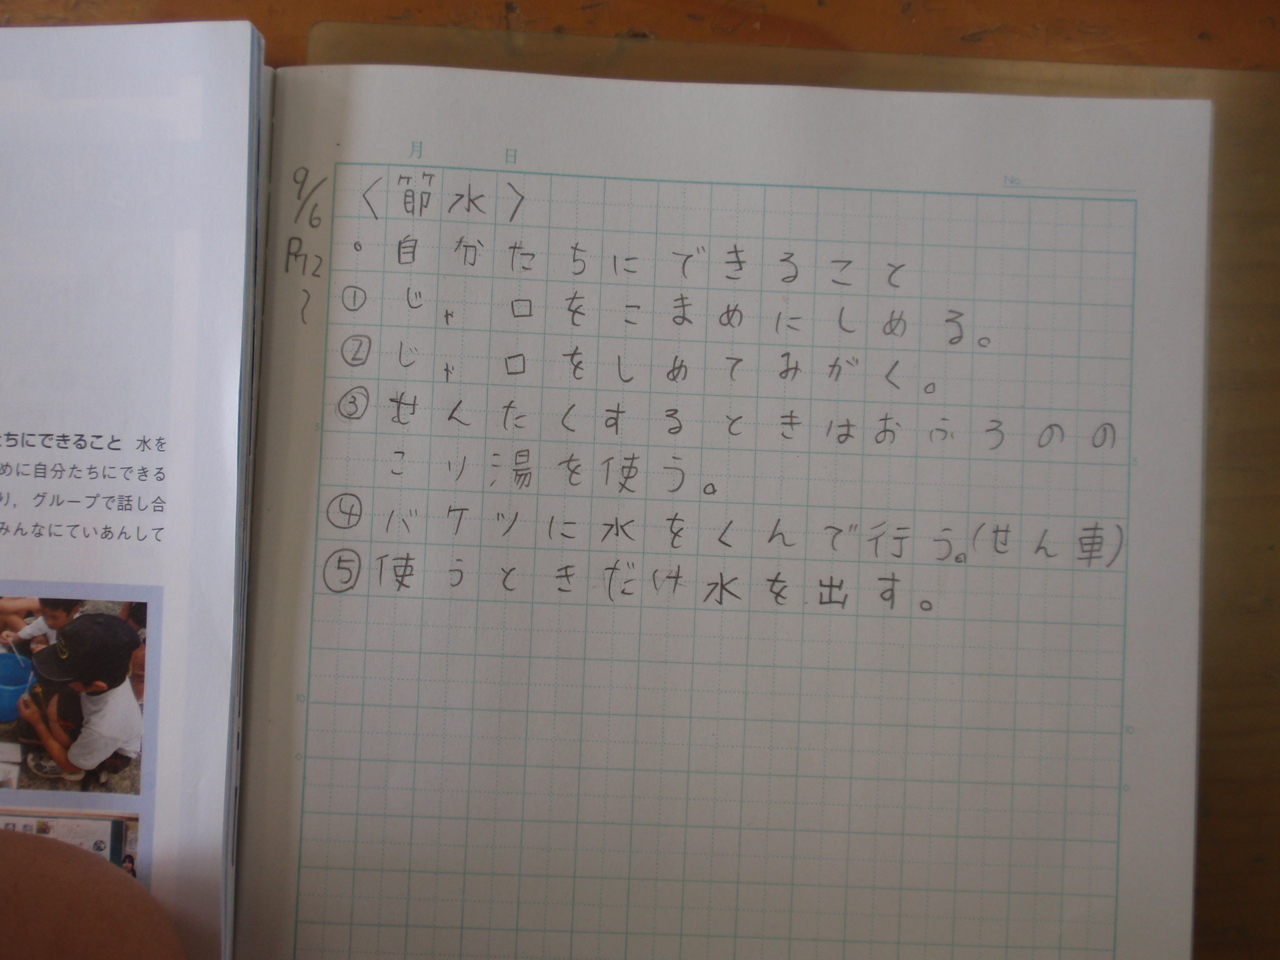 たちにできること 水を
めに自分たちにできる
り，グループで話し合
みんなにていあんして
月 日 No.
9/6 〈節水〉
P.72 。自分たちにできること
〜 ① じゃ口をこまめにしめる。
② じゃ口をしめてみがく。
③ せんたくするときはおふろのの
こり湯を使う。
④ バケツに水をくんで行う。(せん車)
⑤ 使うときだけ水を出す。
5
5
10
10